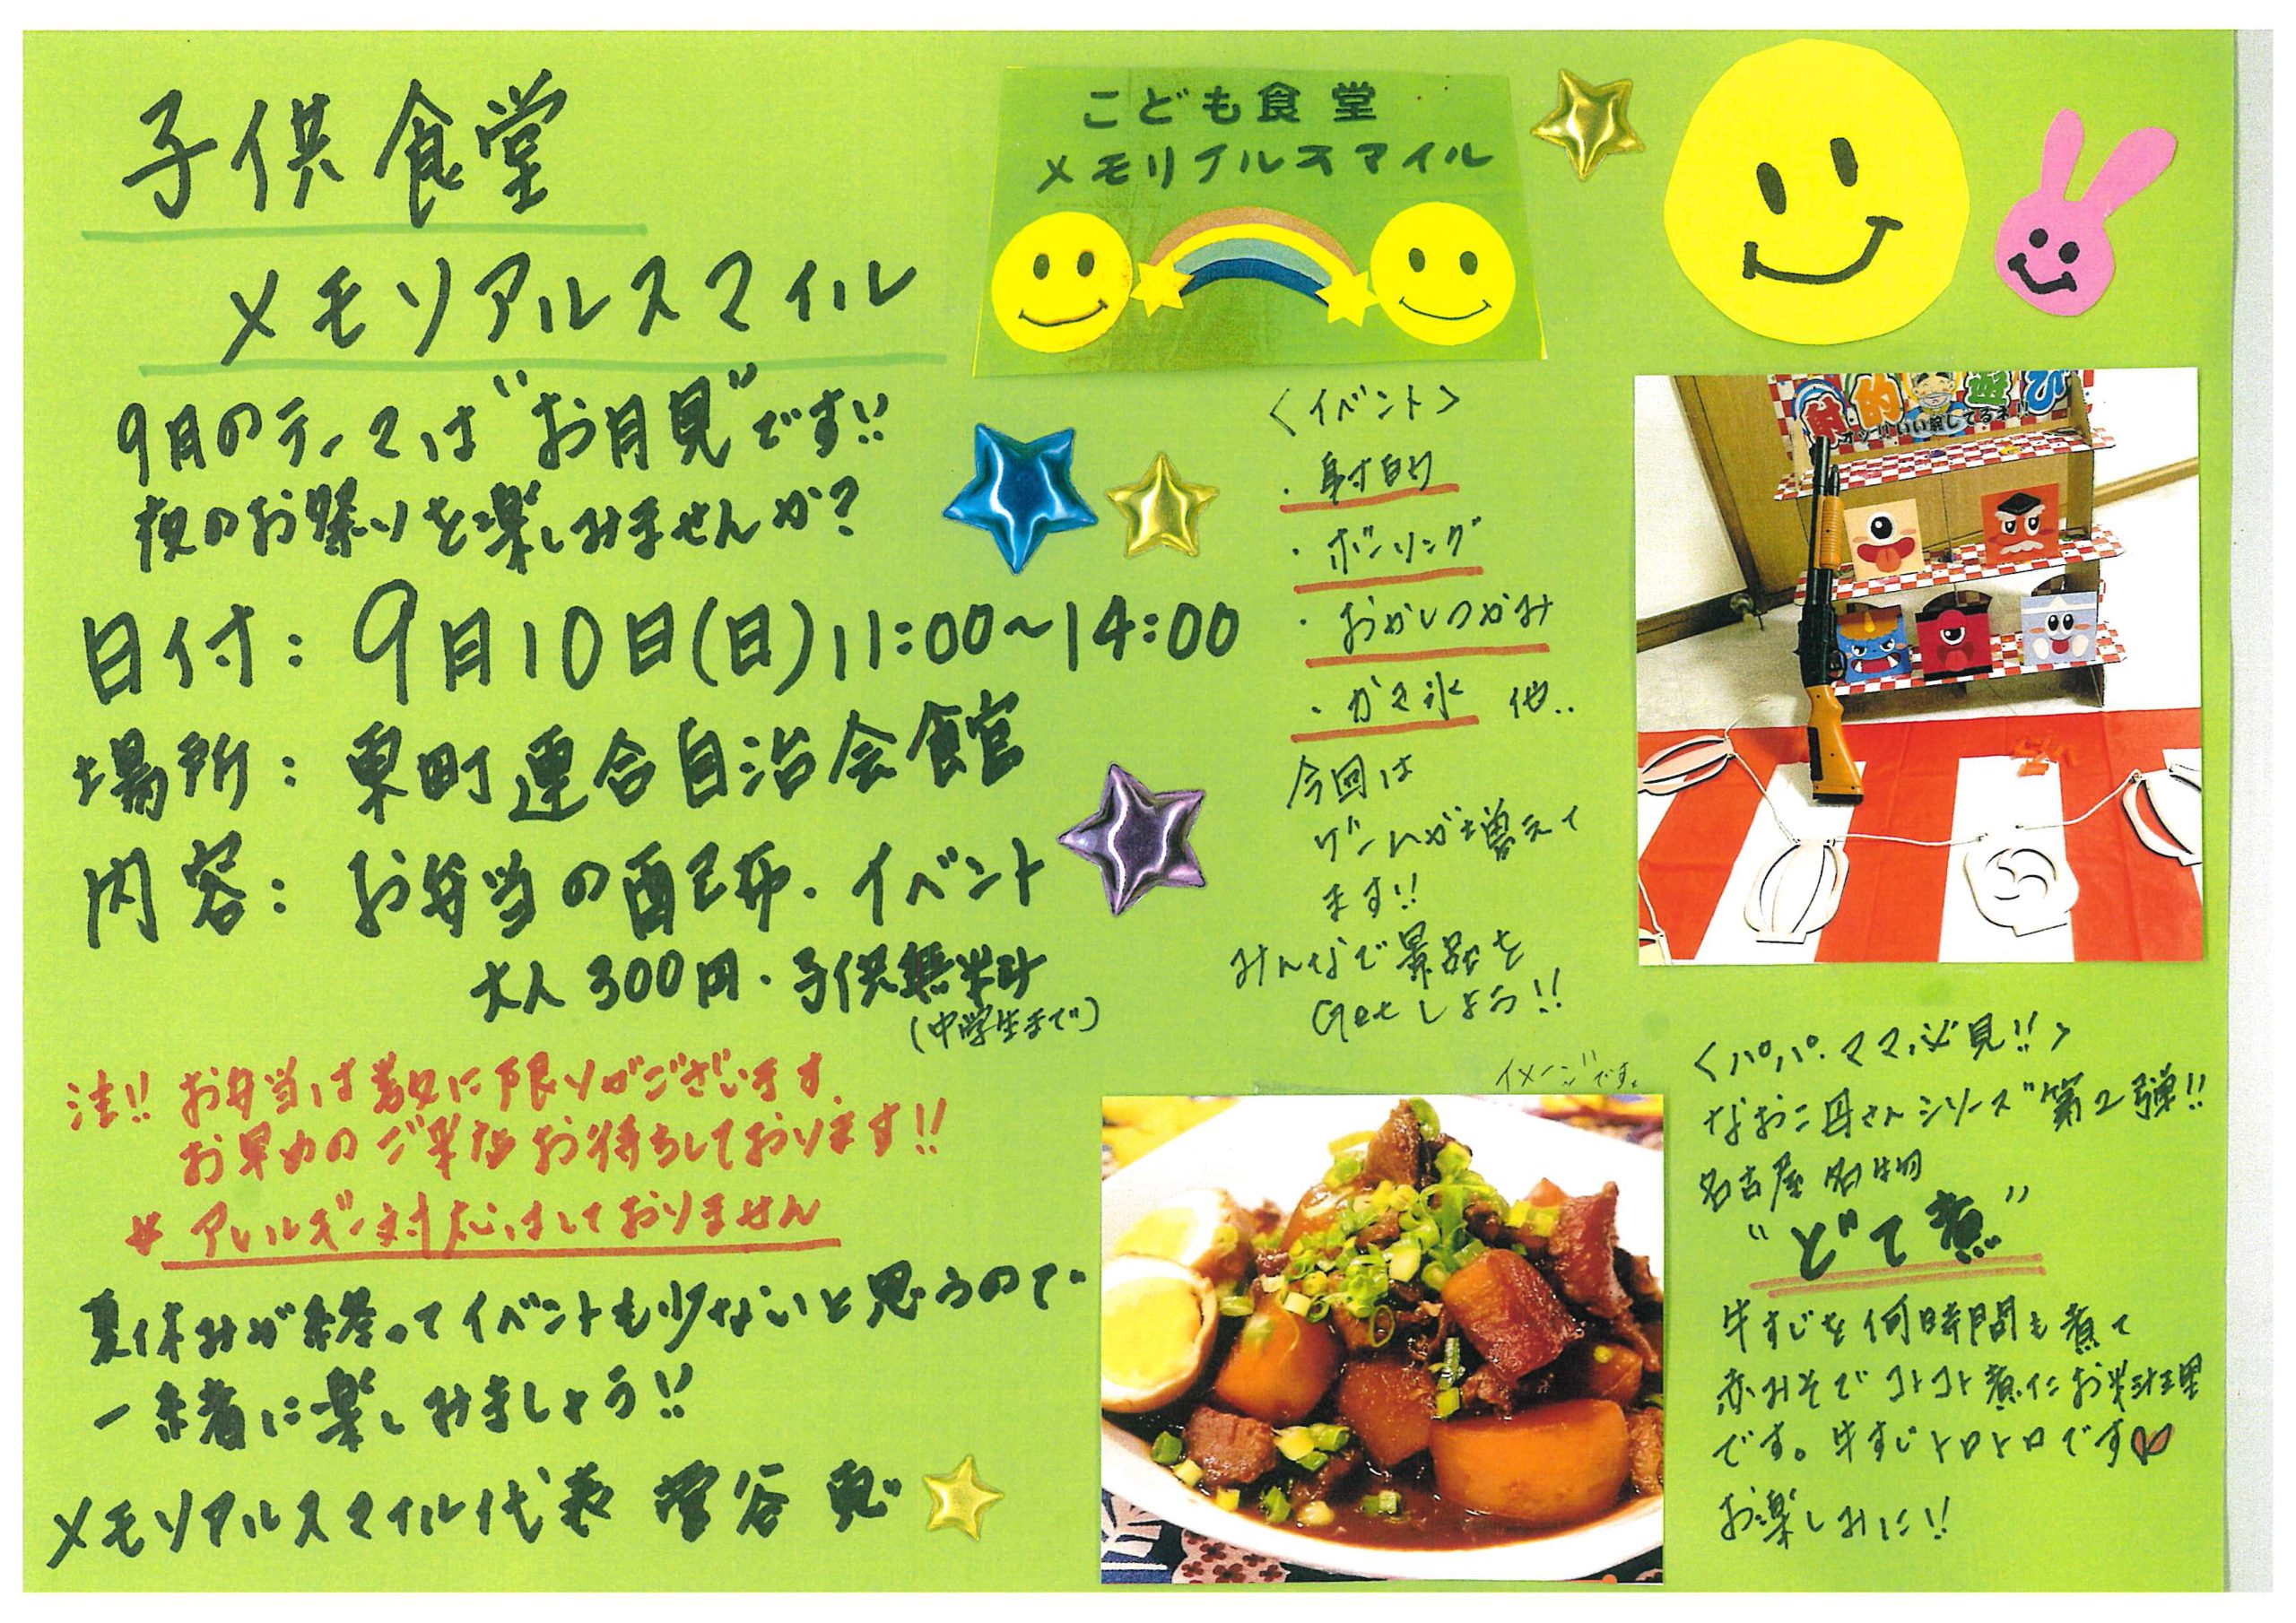 子供食堂
メモリアルスマイル
こども食堂
メモリアルスマイル
9月のテーマは"お月見"です!!
夜のお祭りを楽しみませんか?
日付: 9月10日(日)11:00~14:00
場所: 東町連合自治会館
内容: お弁当の配布・イベント
大人300円・子供無料
(中学生まで)
注!! お弁当は数に限りがございます。
お早めのご来店お待ちしております!!
* アレルギー対応はしておりません
夏休みが終ってイベントも少ないと思うので
一緒に楽しみましょう!!
メモリアルスマイル代表 菅谷
<イベント>
・射的
・ボーリング
・おかしつかみ
・かき氷 他..
今回は
ゲームが増えて
ます!!
みんなで景品を
Getしよう!!
射的遊び
いい射してるネ!!
イメージです。
<パパ・ママ必見!!>
なおこ母さんシリーズ第2弾!!
名古屋名物
"どて煮"
牛すじを何時間も煮て
赤みそでコトコト煮たお料理
です。牛すじトロトロです♡
お楽しみに!!